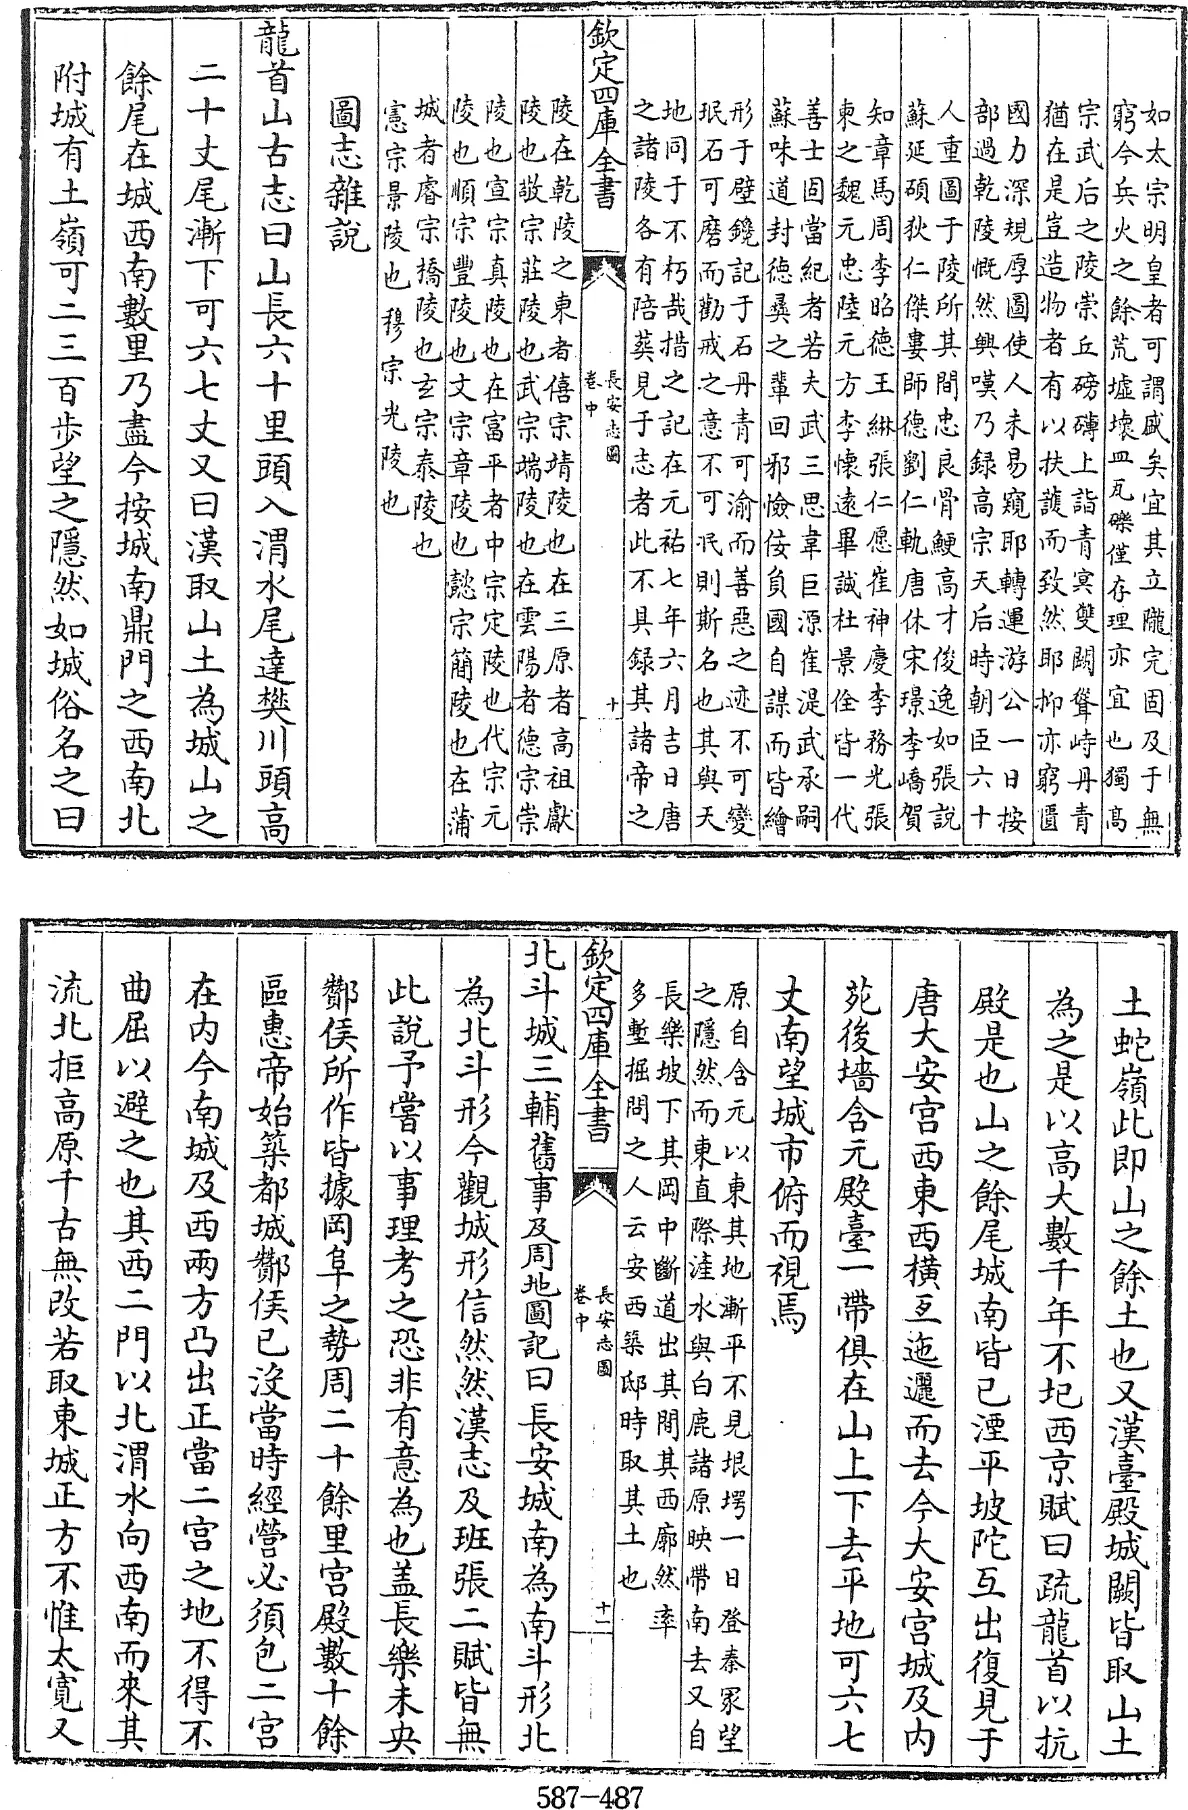 如太宗明皇者可謂盛矣宜其立隴完固及于無
窮今兵火之餘荒墟壞皿瓦礫僅存理亦宜也獨高
宗武后之陵崇丘磅礴上詣青冥雙闕聳峙丹青
猶在是豈造物者有以扶䕶而致然耶抑亦窮匱
國力深規厚圖使人未易窺耶轉運游公一日按
部過乾陵慨然興嘆乃録高宗天后時朝臣六十
人重圖于陵所其間忠良骨鯁高才俊逸如張說
蘇延碩狄仁傑婁師德劉仁軌唐休宋璟李嶠賀
知章馬周李昭德王綝張仁愿崔神慶李務光張
柬之魏元忠陸元方李懷遠畢誠杜景佺皆一代
善士固當紀者若夫武三思韋巨源崔湜武承嗣
蘇味道封德彞之輩回邪憸佞負國自謀而皆繪
形于壁鑱記于石丹青可渝而善惡之迹不可變
珉石可磨而勸戒之意不可泯則斯名也其與天
地同于不朽哉措之記在元祐七年六月吉日唐
之諸陵各有陪葬見于志者此不具録其諸帝之
欽定四庫全書
長安志圖
卷中
十
陵在乾陵之東者僖宗靖陵也在三原者高祖獻
陵也敬宗莊陵也武宗端陵也在雲陽者德宗崇
陵也宣宗真陵也在富平者中宗定陵也代宗元
陵也順宗豐陵也文宗章陵也懿宗簡陵也在蒲
城者睿宗橋陵也玄宗泰陵也
憲宗景陵也穆宗光陵也
圖志雜説
龍首山古志曰山長六十里頭入渭水尾達樊川頭高
二十丈尾漸下可六七丈又曰漢取山土為城山之
餘尾在城西南數里乃盡今按城南鼎門之西南北
附城有土嶺可二三百步望之隱然如城俗名之曰
土蛇嶺此即山之餘土也又漢臺殿城闕皆取山土
為之是以高大數千年不圮西京賦曰疏龍首以抗
殿是也山之餘尾城南皆已湮平坡陀互出復見于
唐大安宫西東西橫亙迤邐而去今大安宫城及内
苑後墻含元殿臺一帶俱在山上下去平地可六七
丈南望城市俯而視焉
原自含元以東其地漸平不見垠堮一日登秦冢望
之隱然而東直際滻水與白鹿諸原映帶南去又自
長樂坡下其岡中斷道出其間其西廓然率
多塹掘問之人云安西築邸時取其土也
欽定四庫全書
長安志圖
卷中
十一
北斗城三輔舊事及周地圖記曰長安城南為南斗形北
為北斗形今觀城形信然然漢志及班張二賦皆無
此說予嘗以事理考之恐非有意為也盖長樂未央
酇侯所作皆據岡阜之勢周二十餘里宫殿數十餘
區惠帝始築都城酇侯已沒當時經營必須包二宫
在内今南城及西兩方凸出正當二宫之地不得不
曲屈以避之也其西二門以北渭水向西南而來其
流北拒高原千古無改若取東城正方不惟太寬又
587-487